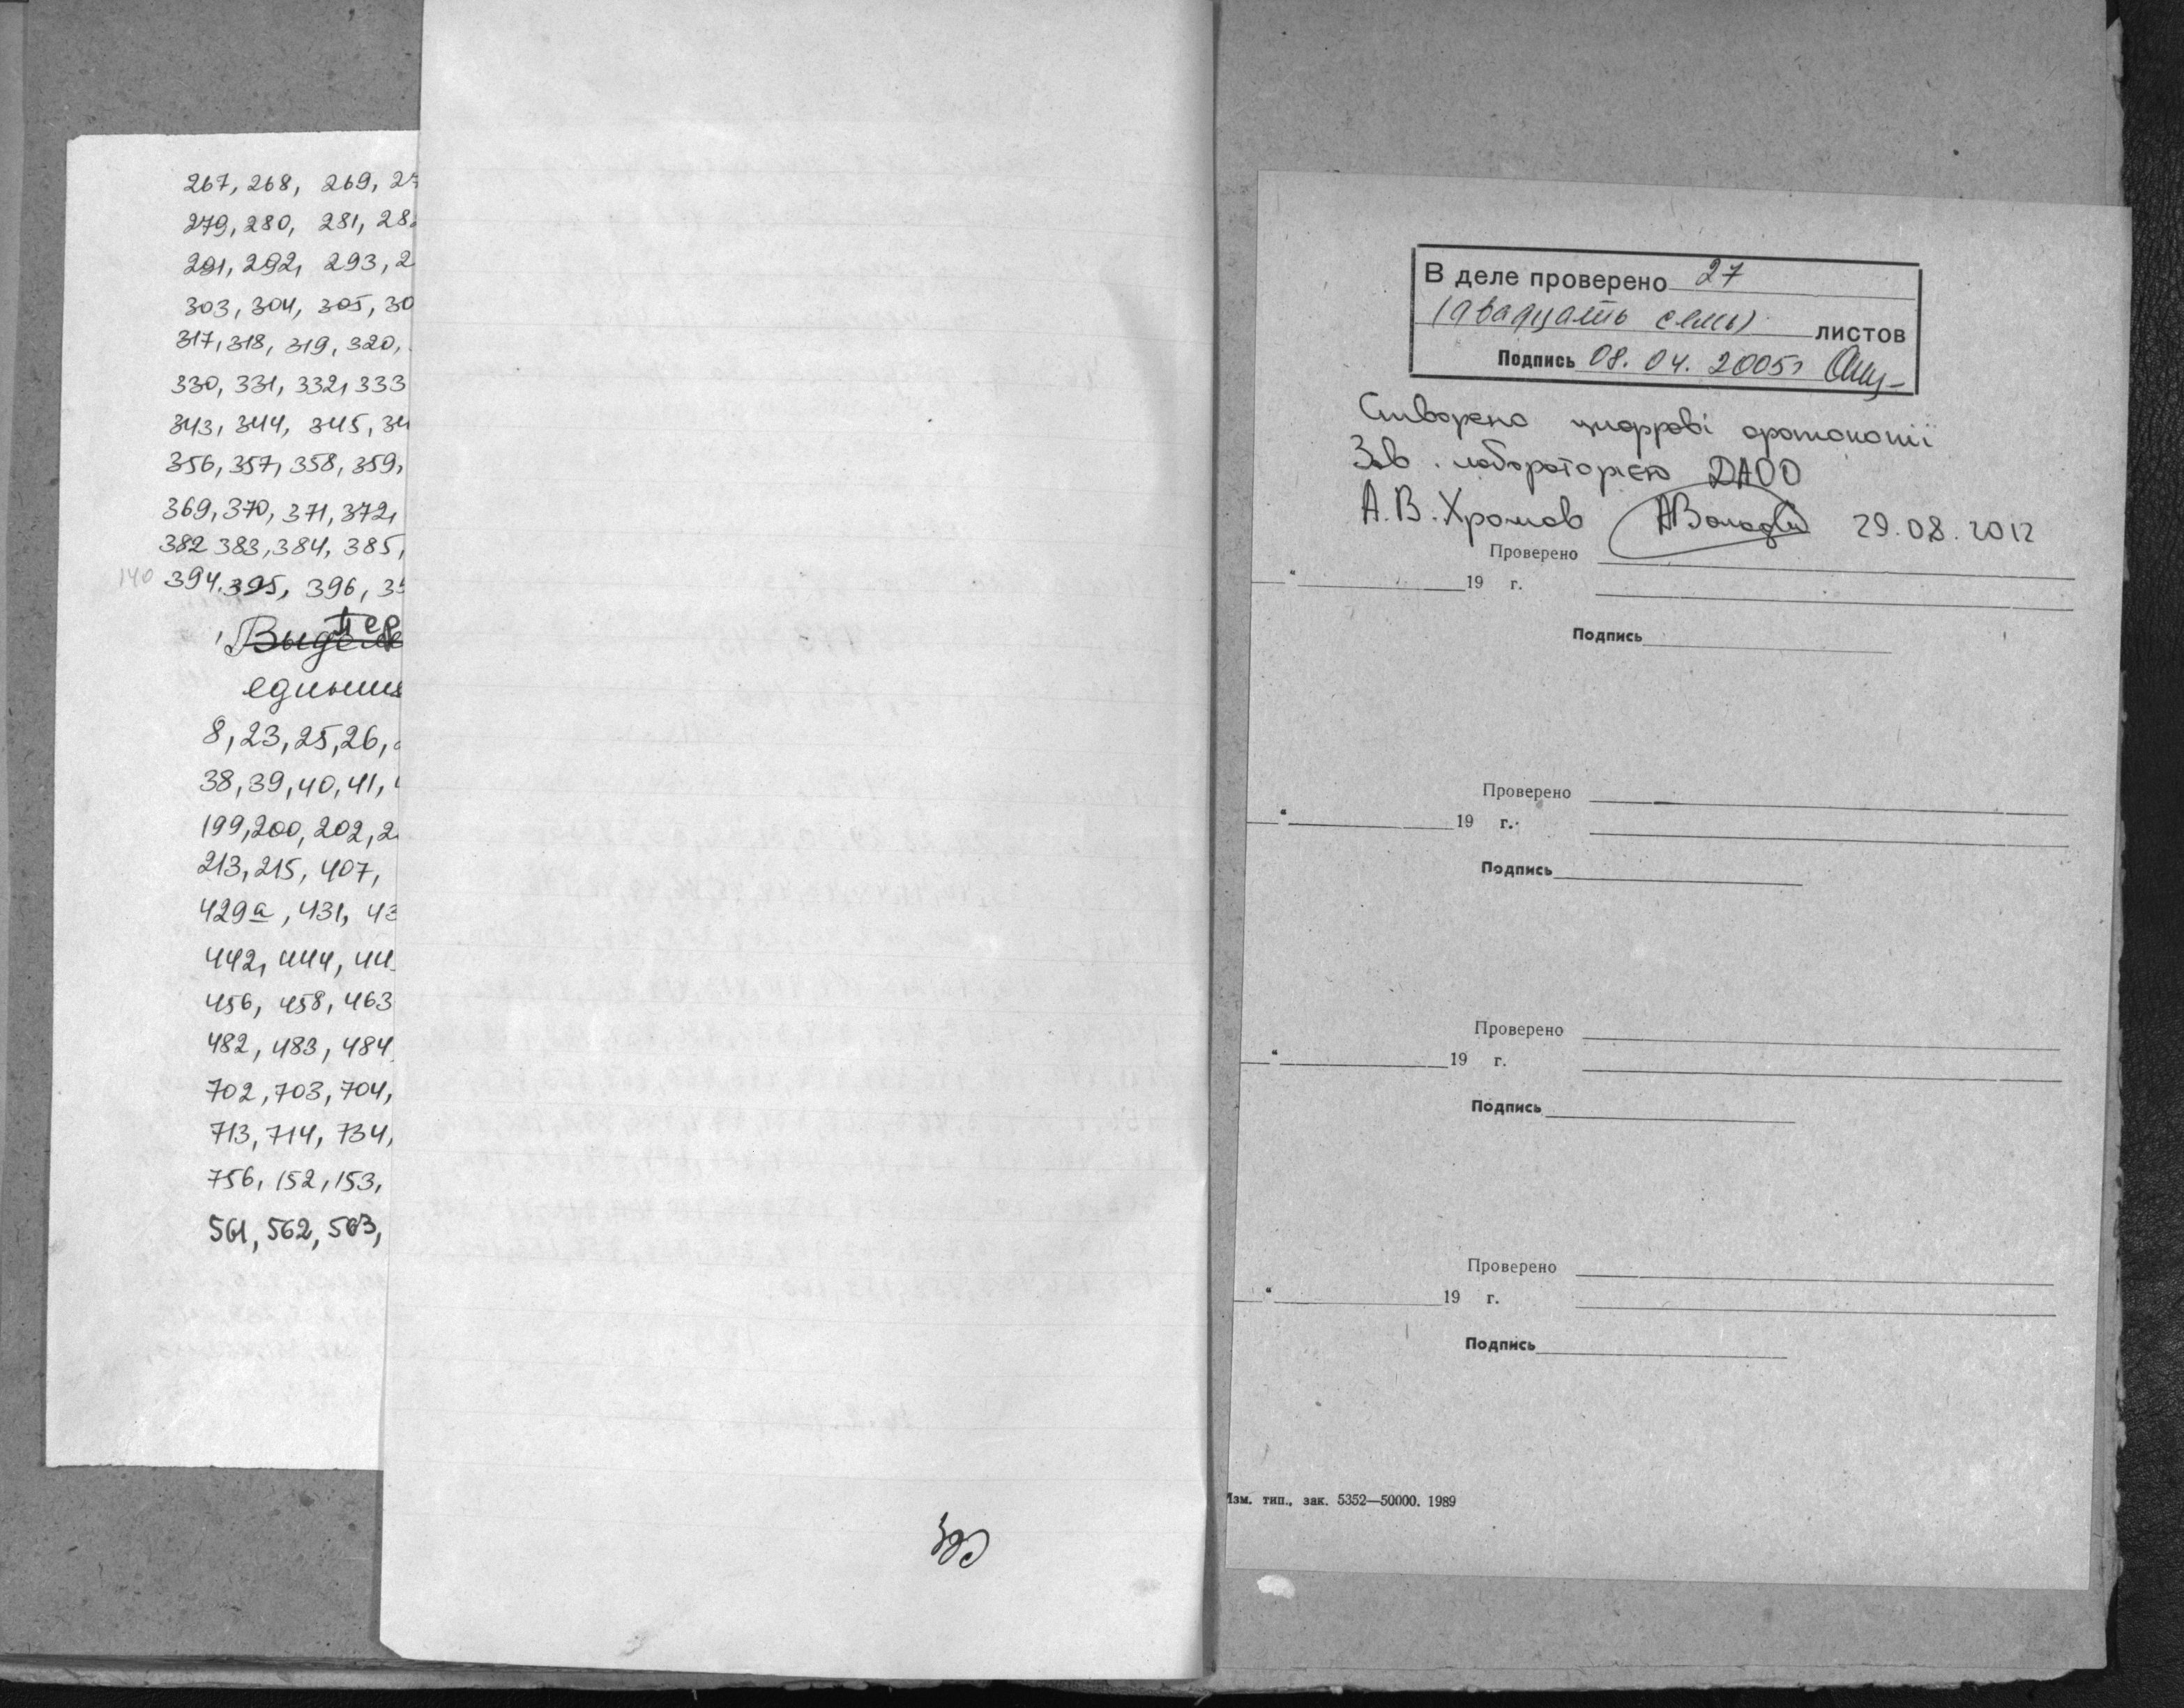 267, 268, 269, 27
279, 280, 281, 28
291, 292, 293, 2
303, 304, 305, 30
317, 318, 319, 320,
330, 331, 332, 333
343, 344, 345, 34
356, 357, 358, 359,
369, 370, 371, 372,
382 383, 384, 385,
140 394. 395, 396, 39
Пер
Выделе
единиц
8, 23, 25, 26,
38, 39, 40, 41,
199, 200, 202, 2
213, 215, 407,
429а, 431, 43
442, 444, 44
456, 458, 463
482, 483, 484
702, 703, 704,
713, 714, 734,
756, 152, 153,
561, 562, 563,
В деле проверено 27
(двадцать семь) листов
Подпись 08.04.2005г
Створено цифрові фотокопії
Зав. лабораторією ДАОО
А.В. Хромов 29.08.2012
Проверено
" 19 г.
Подпись
Проверено
" 19 г.
Подпись
Проверено
" 19 г.
Подпись
Проверено
" 19 г.
Подпись
Изм. тип., зак. 5352—50000. 1989